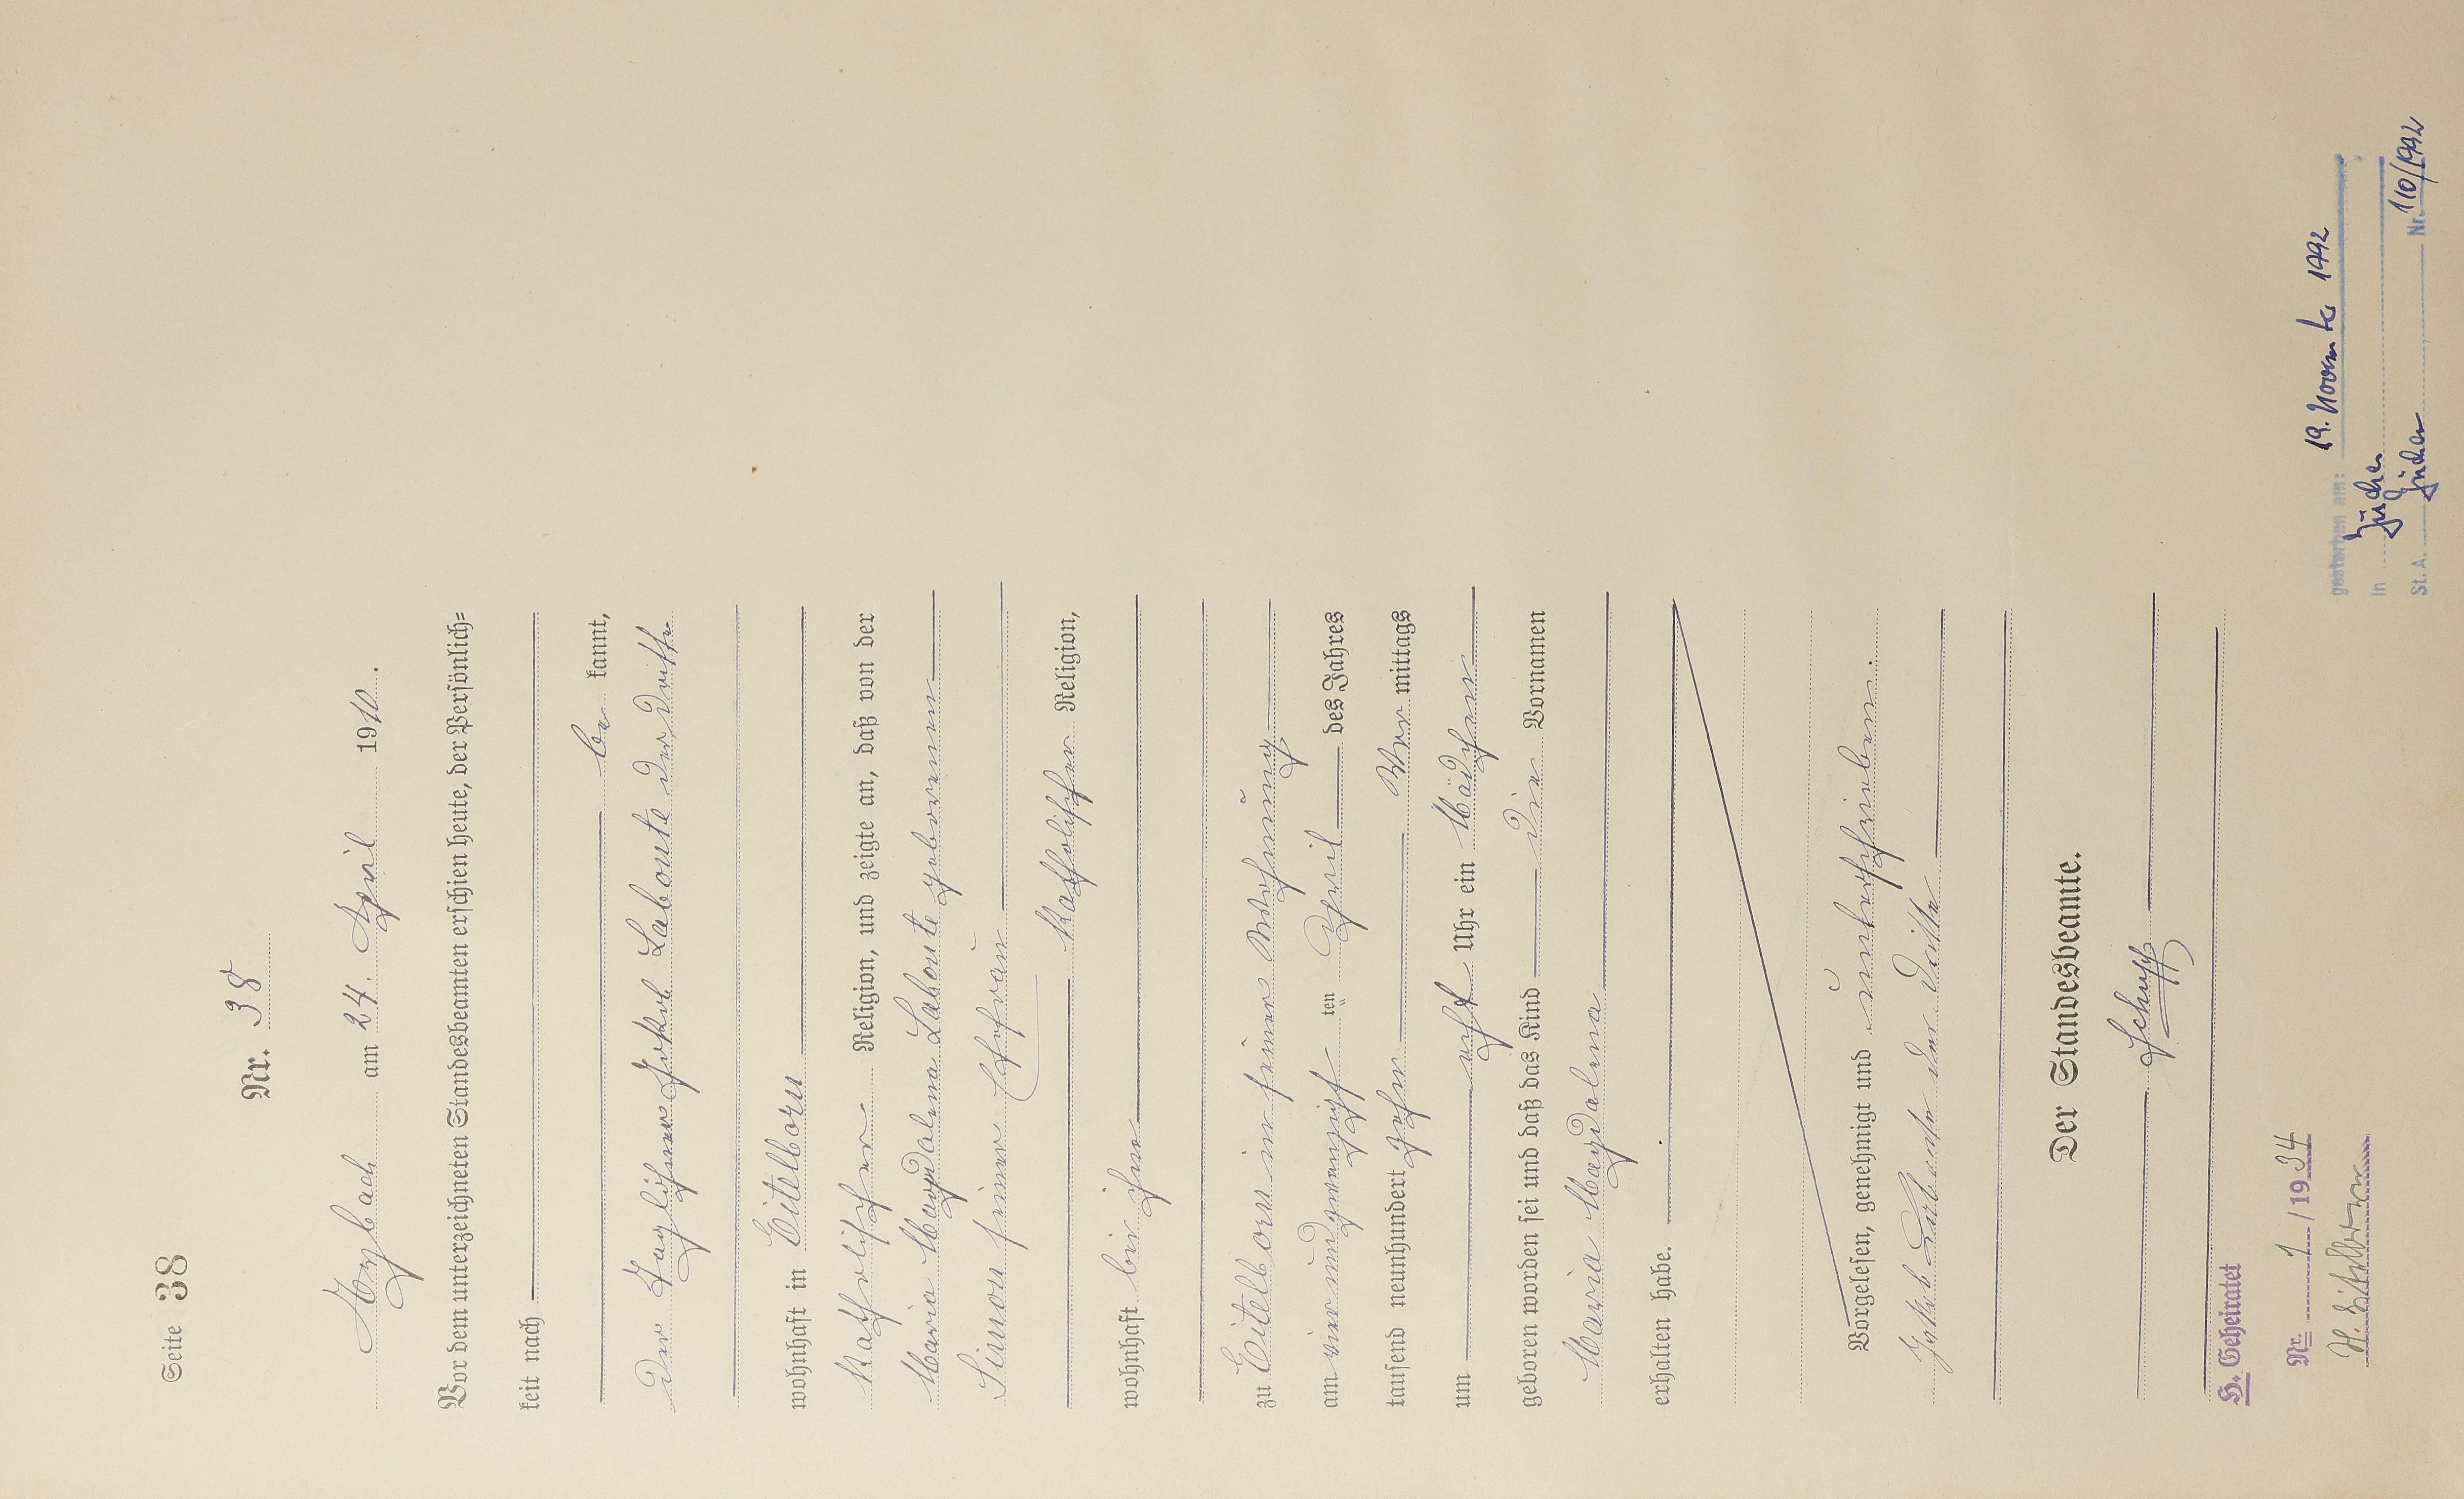 Seite 38
Nr. 38
Arzbach am 24. April 1910.
Vor dem unterzeichneten Standesbeamten erschien heute, der Persönlich=
keit nach
be kannt,
der Taglöhner Jakob Labonte der dritte
wohnhaft in Eitelborn
katholischer Religion, und zeigte an, daß von der
Maria Magdalena Labonte geborenen
Simon seiner Ehefrau
katholischer Religion,
wohnhaft bei ihm
zu Eitelborn in seiner Wohnung
am vierundzwanzigsten April des Jahres
tausend neunhundert zehn Vor mittags
um acht Uhr ein Mädchen
geboren worden sei und daß das Kind die Vornamen
Maria Magdalena
erhalten habe.
Vorgelesen, genehmigt und unterschrieben.
Jakob Labonte der Dritte
Der Standesbeamte.
H. Geheiratet
Nr. 1 /1934
St. Eitelborn
gestorben am: 19. November 1992
in Jüchen
St. A. Jüchen Nr. 110/1992